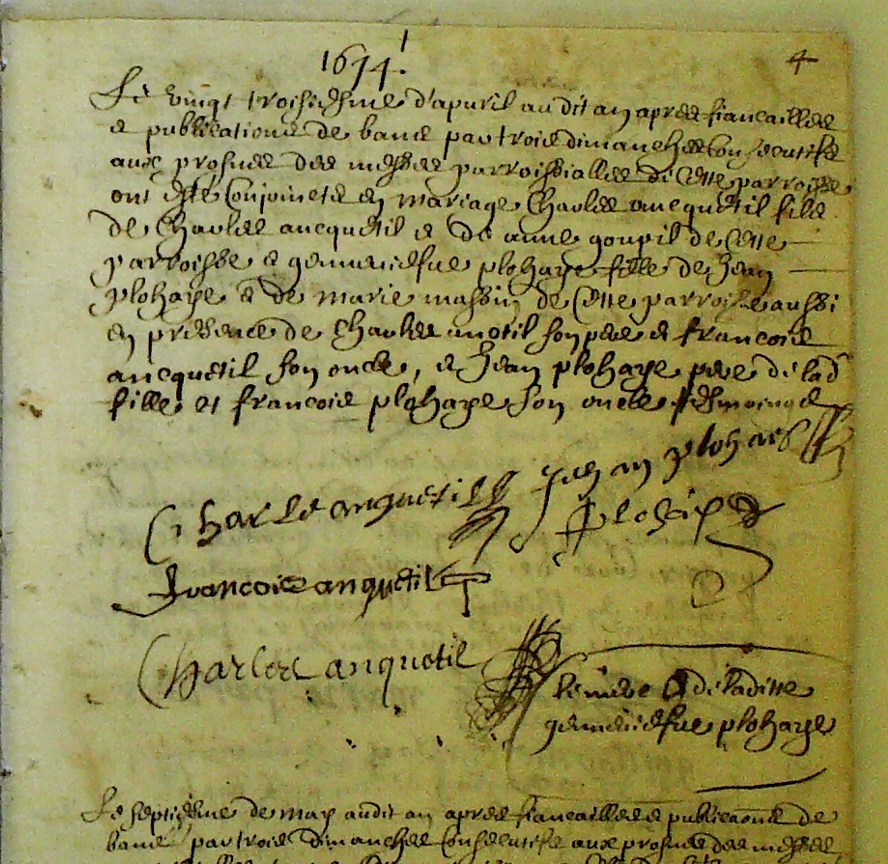 1674.
4
Le vingt troisiesme d'apuril au dit an apres fiancailles
et publications de bans par trois dimanches consecutifs
aux prosnes des messes parroissialles de cette parroisse
ont esté conjoincts en mariage Charles ancquetil fils
de Charles ancquetil et de anne goupil de cette
parroisse et geneuiefue plohaye fille de Jean
plohaye et de marie massin de cette parroisse aussi
en presence de Charles anctil son pere et francois
ancquetil son oncle, et Jean plohaye pere de lad
fille et francois plohaye son oncle tesmoings
Charle anquetil Jehan plohais
plohaye
francois anquetil
Charles anquetil
la marque de laditte
geneuiefue plohaye
Le septiesme de may audit an apres fiancailles et publications de
bans par trois dimanches consecutifs aux prosnes des messes